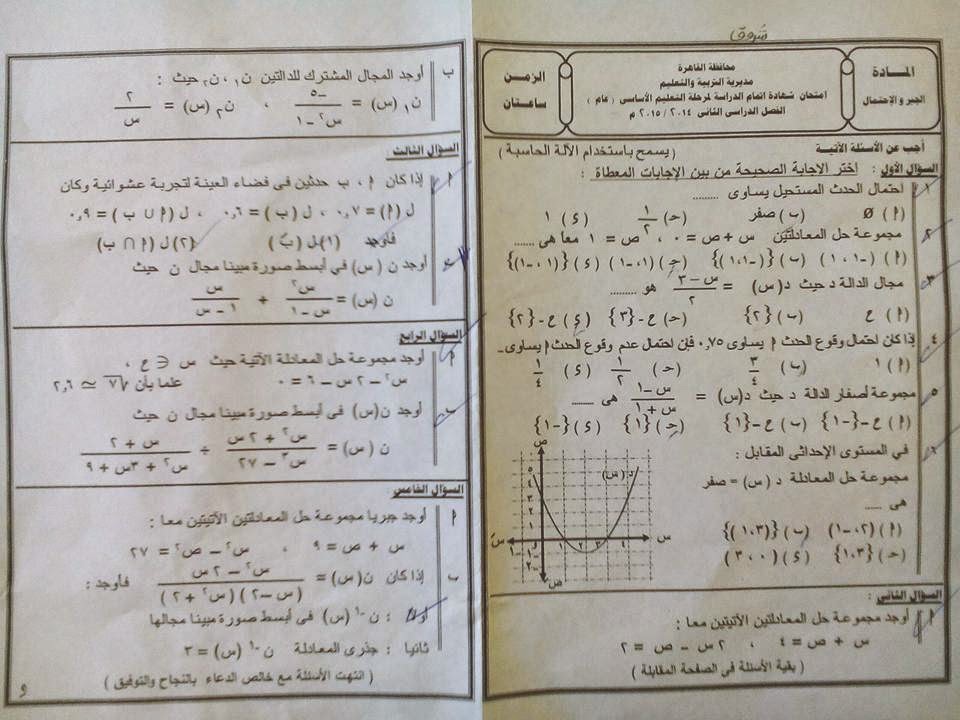 شروق
المادة
الجبر والإحتمال
محافظة القاهرة
مديرية التربية والتعليم
امتحان شهادة اتمام الدراسة لمرحلة التعليم الأساسى ( عام )
الفصل الدراسى الثانى ٢٠١٤ / ٢٠١٥ م
الزمن
ساعتان
أجب عن الأسئلة الآتية : ( يسمح باستخدام الآلة الحاسبة )
السؤال الأول : أختر الاجابة الصحيحة من بين الإجابات المعطاة :
١. احتمال الحدث المستحيل يساوى ........
( ٢ ) Ø ( ب ) صفر ( حـ ) ١/٢ ( ء ) ١
٢. مجموعة حل المعادلتين س + ص = ٠ ، ص = ١ معاً هى ......
( ٢ ) ( -١ ، ١ ) ( ب ) {( -١ ، ١ )} ( حـ ) ( ١ ، -١ ) ( ء ) {( ١ ، -١ )}
٣. مجال الدالة د حيث د( س ) = س - ٣ / ٢ هو ........
( ٢ ) ح ( ب ) {٢} ( حـ ) ح - {٣} ( ء ) ح - {٢}
٤. إذا كان احتمال وقوع الحدث ٢ يساوى ٠,٧٥ فإن احتمال عدم وقوع الحدث ٢ يساوى
( ٢ ) ١ ( ب ) ٣/٤ ( حـ ) ١/٢ ( ء ) ١/٤
٥. مجموعة أصفار الدالة د حيث د( س ) = س - ١ / س + ١ هى ......
( ٢ ) ح - {-١} ( ب ) ح - {١} ( حـ ) {١} ( ء ) {-١}
٦. في المستوى الإحداثى المقابل :
مجموعة حل المعادلة د ( س ) = صفر
هى ......
( ب ) {( ٣ ، ١ )}
( حـ ) {٣ ، ١} ( ء ) ( ٠ ، ٣ )
ص
د ( س )
٥
٤
٣
٢
١
س ١ ٢ ٣ ٤ س
-١
-٢
ص
السؤال الثانى :
٢ أوجد مجموعة حل المعادلتين الآتيتين معا :
س + ص = ٤ ، ٢ س - ص = ٢
( بقية الأسئلة في الصفحة المقابلة )
ب أوجد المجال المشترك للدالتين ن١ ، ن٢ حيث :
ن١ ( س ) = -٥ / س٢ - ١ ، ن٢ ( س ) = ٢ / س
السؤال الثالث :
٢ إذا كان ٢ ، ب حدثين فى فضاء العينة لتجربة عشوائية وكان
ل ( ٢ ) = ٠,٧ ، ل ( ب ) = ٠,٦ ، ل ( ٢ ∪ ب ) = ٠,٩
فأوجد (١) ل ( بَ ) (٢) ل ( ٢ ∩ ب )
أوجد ن ( س ) في أبسط صورة مبينا مجال ن حيث
ن ( س ) = س٢ / س - ١ + س / ١ - س
السؤال الرابع
٢ أوجد مجموعة حل المعادلة الآتية حيث س ∈ ح ،
س٢ - ٢ س - ٦ = ٠ علما بأن √٧ ≃ ٢,٦
ب أوجد ن( س ) فى أبسط صورة مبينا مجال ن حيث
ن ( س ) = س٢ + ٢ س / س٣ - ٢٧ ÷ س + ٢ / س٢ + ٣س + ٩
السؤال الخامس
٢ أوجد جبريا مجموعة حل المعادلتين الآتيتين معا :
س + ص = ٩ ، س٢ - ص٢ = ٢٧
ب إذا كان ن( س ) = س٢ - ٢ س / ( س - ٢ ) ( س٢ + ٢ ) فأوجد :
أولا : ن-١ ( س ) فى أبسط صورة مبينا مجالها
ثانيا : جذرى المعادلة ن-١ ( س ) = ٣
( انتهت الأسئلة مع خالص الدعاء بالنجاح والتوفيق )